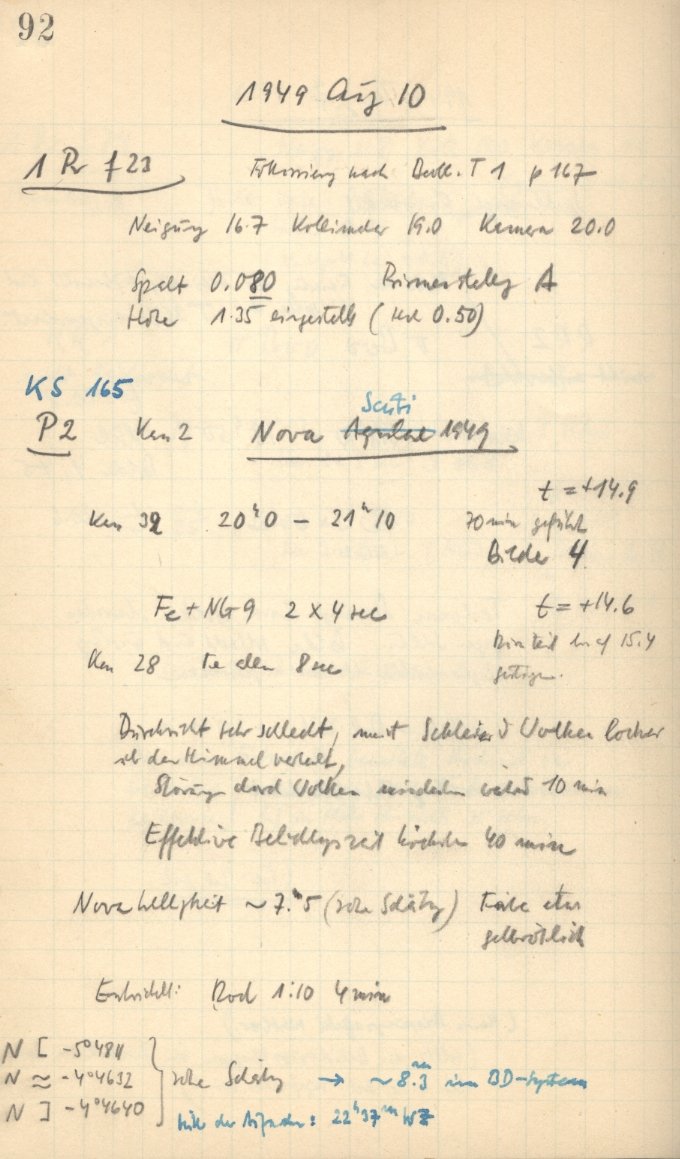 92
1949 Aug 10
1 Pr f 23 Fokussierung nach Beob. T 1 p 167
Neigung 16.7 Kollimator 19.0 Kamera 20.0
Spalt 0.080 Prismenstellg A
Höhe 1.35 eingestellt ( 0.50)
KS 165
Scuti
P2 Kas 2 Nova Aquilae 1949
t = +14.9
Kas 32 20ʰ0 – 21ʰ10 70 min geführt
Bilder 4
Fe + NG 9 2 x 4 sec t = +14.6
Kas 28 8 sec 15.4
gestiegen.
Durchsicht sehr schlecht, meist Schleier Wolken
der Himmel
Störung durch Wolken mindestens 10 min
Effektive Belichtgszeit höchstens 40 min
Novahelligkeit ~ 7.ᵐ5 (rohe Schätzg) Farbe etwas
gelbrötlich
Entwickelt: Rod 1:10 4 min
N [ -5°4811
N ≈ -4°4632 } rohe Schätzg → ~ 8.ᵐ3 im BD-System
N ] -4°4640 Mitte der Aufnahme: 22ʰ37ᵐ WZ